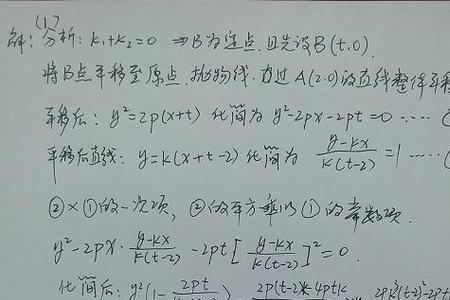 解:(1)分析: k₁+k₂=0 ⇒B为定点,且先设B(t,0).
将B点平移至原点,抛物线,过A(2,0)的直线整体平移
平移后: y²=2p(x+t) 化简为 y²-2px-2pt=0 ……
平移后直线: y=k(x+t-2) 化简为 (y-kx)/(k(t-2))=1 ……
②×①的一次项, ②的平方乘以①的常数项.
y²-2px·(y-kx)/(k(t-2))-2pt[(y-kx)/(k(t-2))]²=0.
化简后: y²(1-2pt